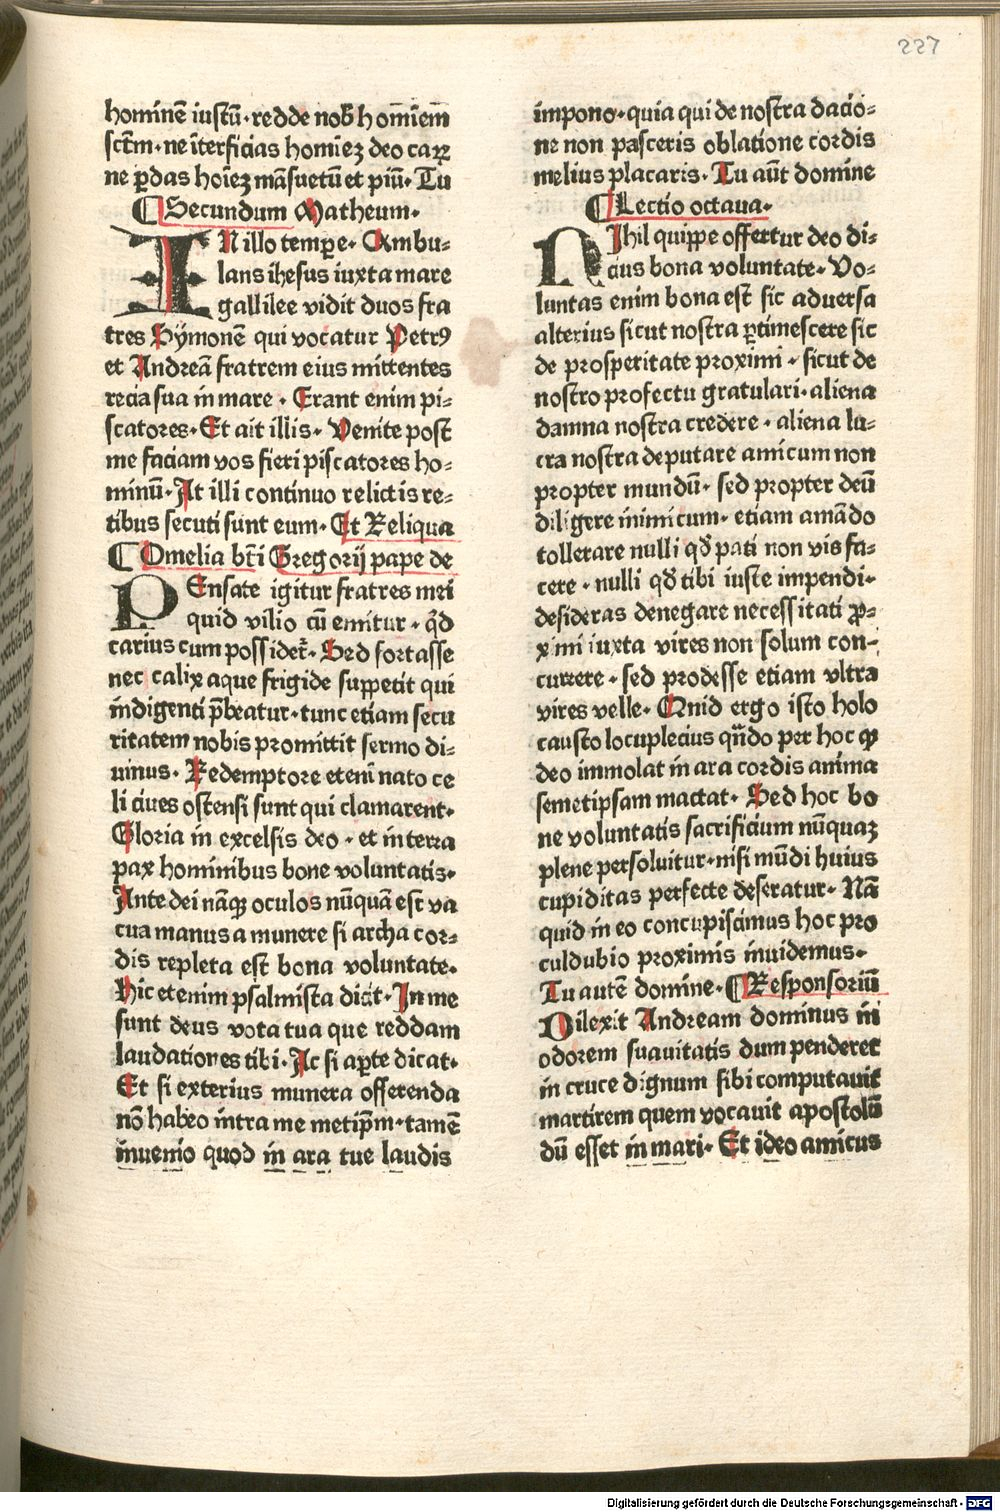 227
hominē iustū · redde nob̄ hom̄iem
sctm̄ · ne īterficias homīeʒ deo caꝝ
ne ꝑdas hoīeʒ māsuetū et piū · Tu
¶ Secundum Matheum ·
IN illo tempꝛe · Ambu⸗
lans ihesus iuxta mare
gallilee vidit duos fra
tres Symonē qui vocatur Petrꝰ
et Andreā fratrem eius mittentes
recia sua in mare · Erant enim pi⸗
scatores · Et ait illis · Venite post
me faciam vos fieri piscatores ho⸗
minū · At illi continuo relictis re⸗
tibus secuti sunt eum · Et Reliqua
¶ Omelia bt̄i Gregorij pape de
PEnsate igitur fratres mei
quid vilio cū emitur · qd̄
carius cum possidet̄ · Sed fortasse
nec calix aque frigide suppetit qui
indigenti p̄beatur · tunc etiam secu
ritatem nobis promittit sermo di⸗
uinus · Redemptore eteni nato ce
li ciues ostensi sunt qui clamarent ·
Gloria in excelsis deo · et in terra
pax hominibus bone voluntatis ·
Ante dei nāqꝫ oculos nūquā est va
cua manus a munere si archa cor⸗
dis repleta est bona voluntate ·
Hic etenim psalmista dicit · In me
sunt deus vota tua que reddam
laudationes tibi · Ac si aꝑte dicat ·
Et si exterius munera offerenda
nō habeo intra me metip̄m · tamē
inuenio quod in ara tue laudis
impono · quia qui de nostra dacio⸗
ne non pasceris oblatione cordis
melius placaris · Tu aūt domine
¶ Lectio octaua ·
NIhil quippe offertur deo di⸗
cius bona voluntate · Vo⸗
luntas enim bona est sic aduersa
alterius sicut nostra ꝑtimescere sic
de prosperitate proximi · sicut de
nostro profectu gratulari · aliena
damna nostra credere · aliena lu⸗
cra nostra deputare amicum non
propter mundū · sed propter deū
diligere inimicum · etiam amādo
tollerare nulli qd̄ pati non vis fa⸗
cere · nulli qd̄ tibi iuste impendi⸗
desideras denegare necessitati ꝓ⸗
ximi iuxta vires non solum con⸗
currere · sed prodesse etiam vltra
vires velle · Quid ergo isto holo
causto locuplecius qn̄do per hoc ꝙ
deo immolat in ara cordis anima
semetipsam mactat · Sed hoc bo
ne voluntatis sacrificium nūquaʒ
plene persoluitur · nisi mūdi huius
cupiditas perfecte deseratur · Nā
quid in eo concupiscimus hoc pro
culdubio proximis inuidemus ·
Tu autē domine · ¶ Responsoriū
Dilexit Andream dominus in
odorem suauitatis dum penderet
in cruce dignum sibi computauit
martirem quem vocauit apostolū
dū esset in mari · Et ideo amicus
Digitalisierung gefördert durch die Deutsche Forschungsgemeinschaft - DFG